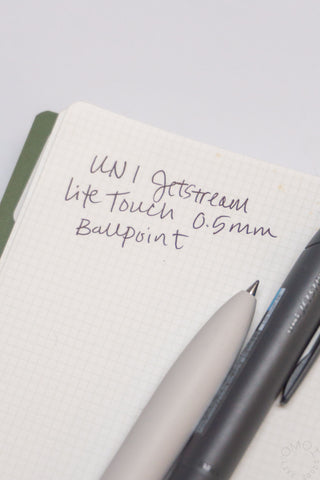 UNI Jetstream
Lite Touch 0.5mm
Ballpoint